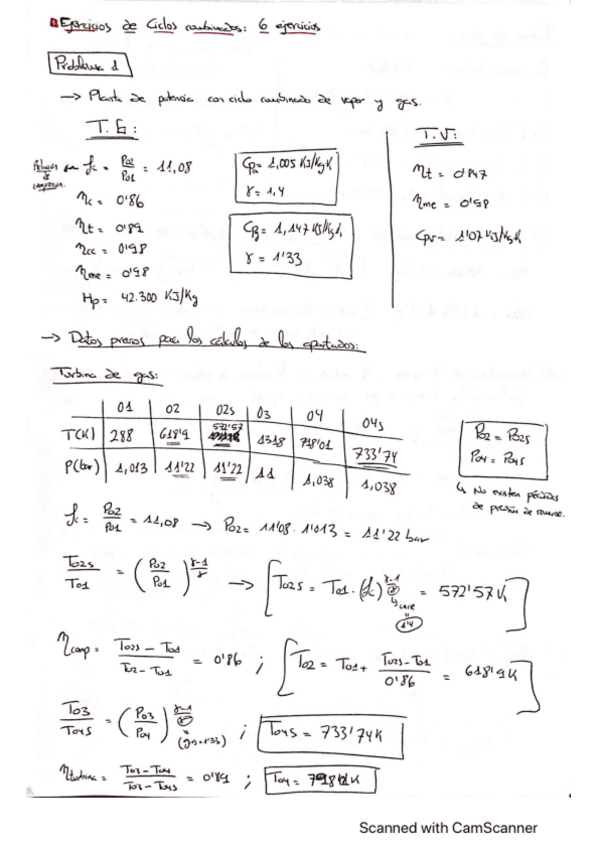 Ejercicios de Ciclos combinados: 6 ejercicios
Problema 1
→ Planta de potencia con ciclo combinado de vapor y gas.
T.G:
fc = P02/P01 = 11,08
ηc = 0'86
ηt = 0'89
ηcc = 0'98
ηme = 0'98
Hp = 42.300 KJ/Kg
Cpa = 1,005 KJ/KgK
γ = 1,4
Cpg = 1,147 KJ/KgK
γ = 1'33
T.V:
ηt = 0'847
ηme = 0'98
Cpv = 1'07 KJ/KgK
→ Datos previos para los cálculos de los apartados:
Turbina de gas:
01 02 02s 03 04 04s
T(K) 288 618'9 572'57 1318 798'01 733'74
P(bar) 1,013 11'22 11'22 11 1,038 1,038
P02 = P02s
P04 = P04s
↳ No existen pérdidas
de presión de
fc = P02/P01 = 11,08 → P02 = 11'08 · 1'013 = 11'22 bar
T02s/T01 = (P02/P01)^(γ-1/γ) → [T02s = T01 · (fc)^(γ-1/γ) = 572'57 K]
1'4
ηcomp = T02s - T01/T02 - T01 = 0'86 ; [T02 = T01 + T02s - T01/0'86 = 618'9 K]
T03/T04s = (P03/P04)^(γ-1/γ) ; T04s = 733'74 K
(γg = 1'33)
ηturbina = T03 - T04/T03 - T04s = 0'89 ; T04 =
Scanned with CamScanner